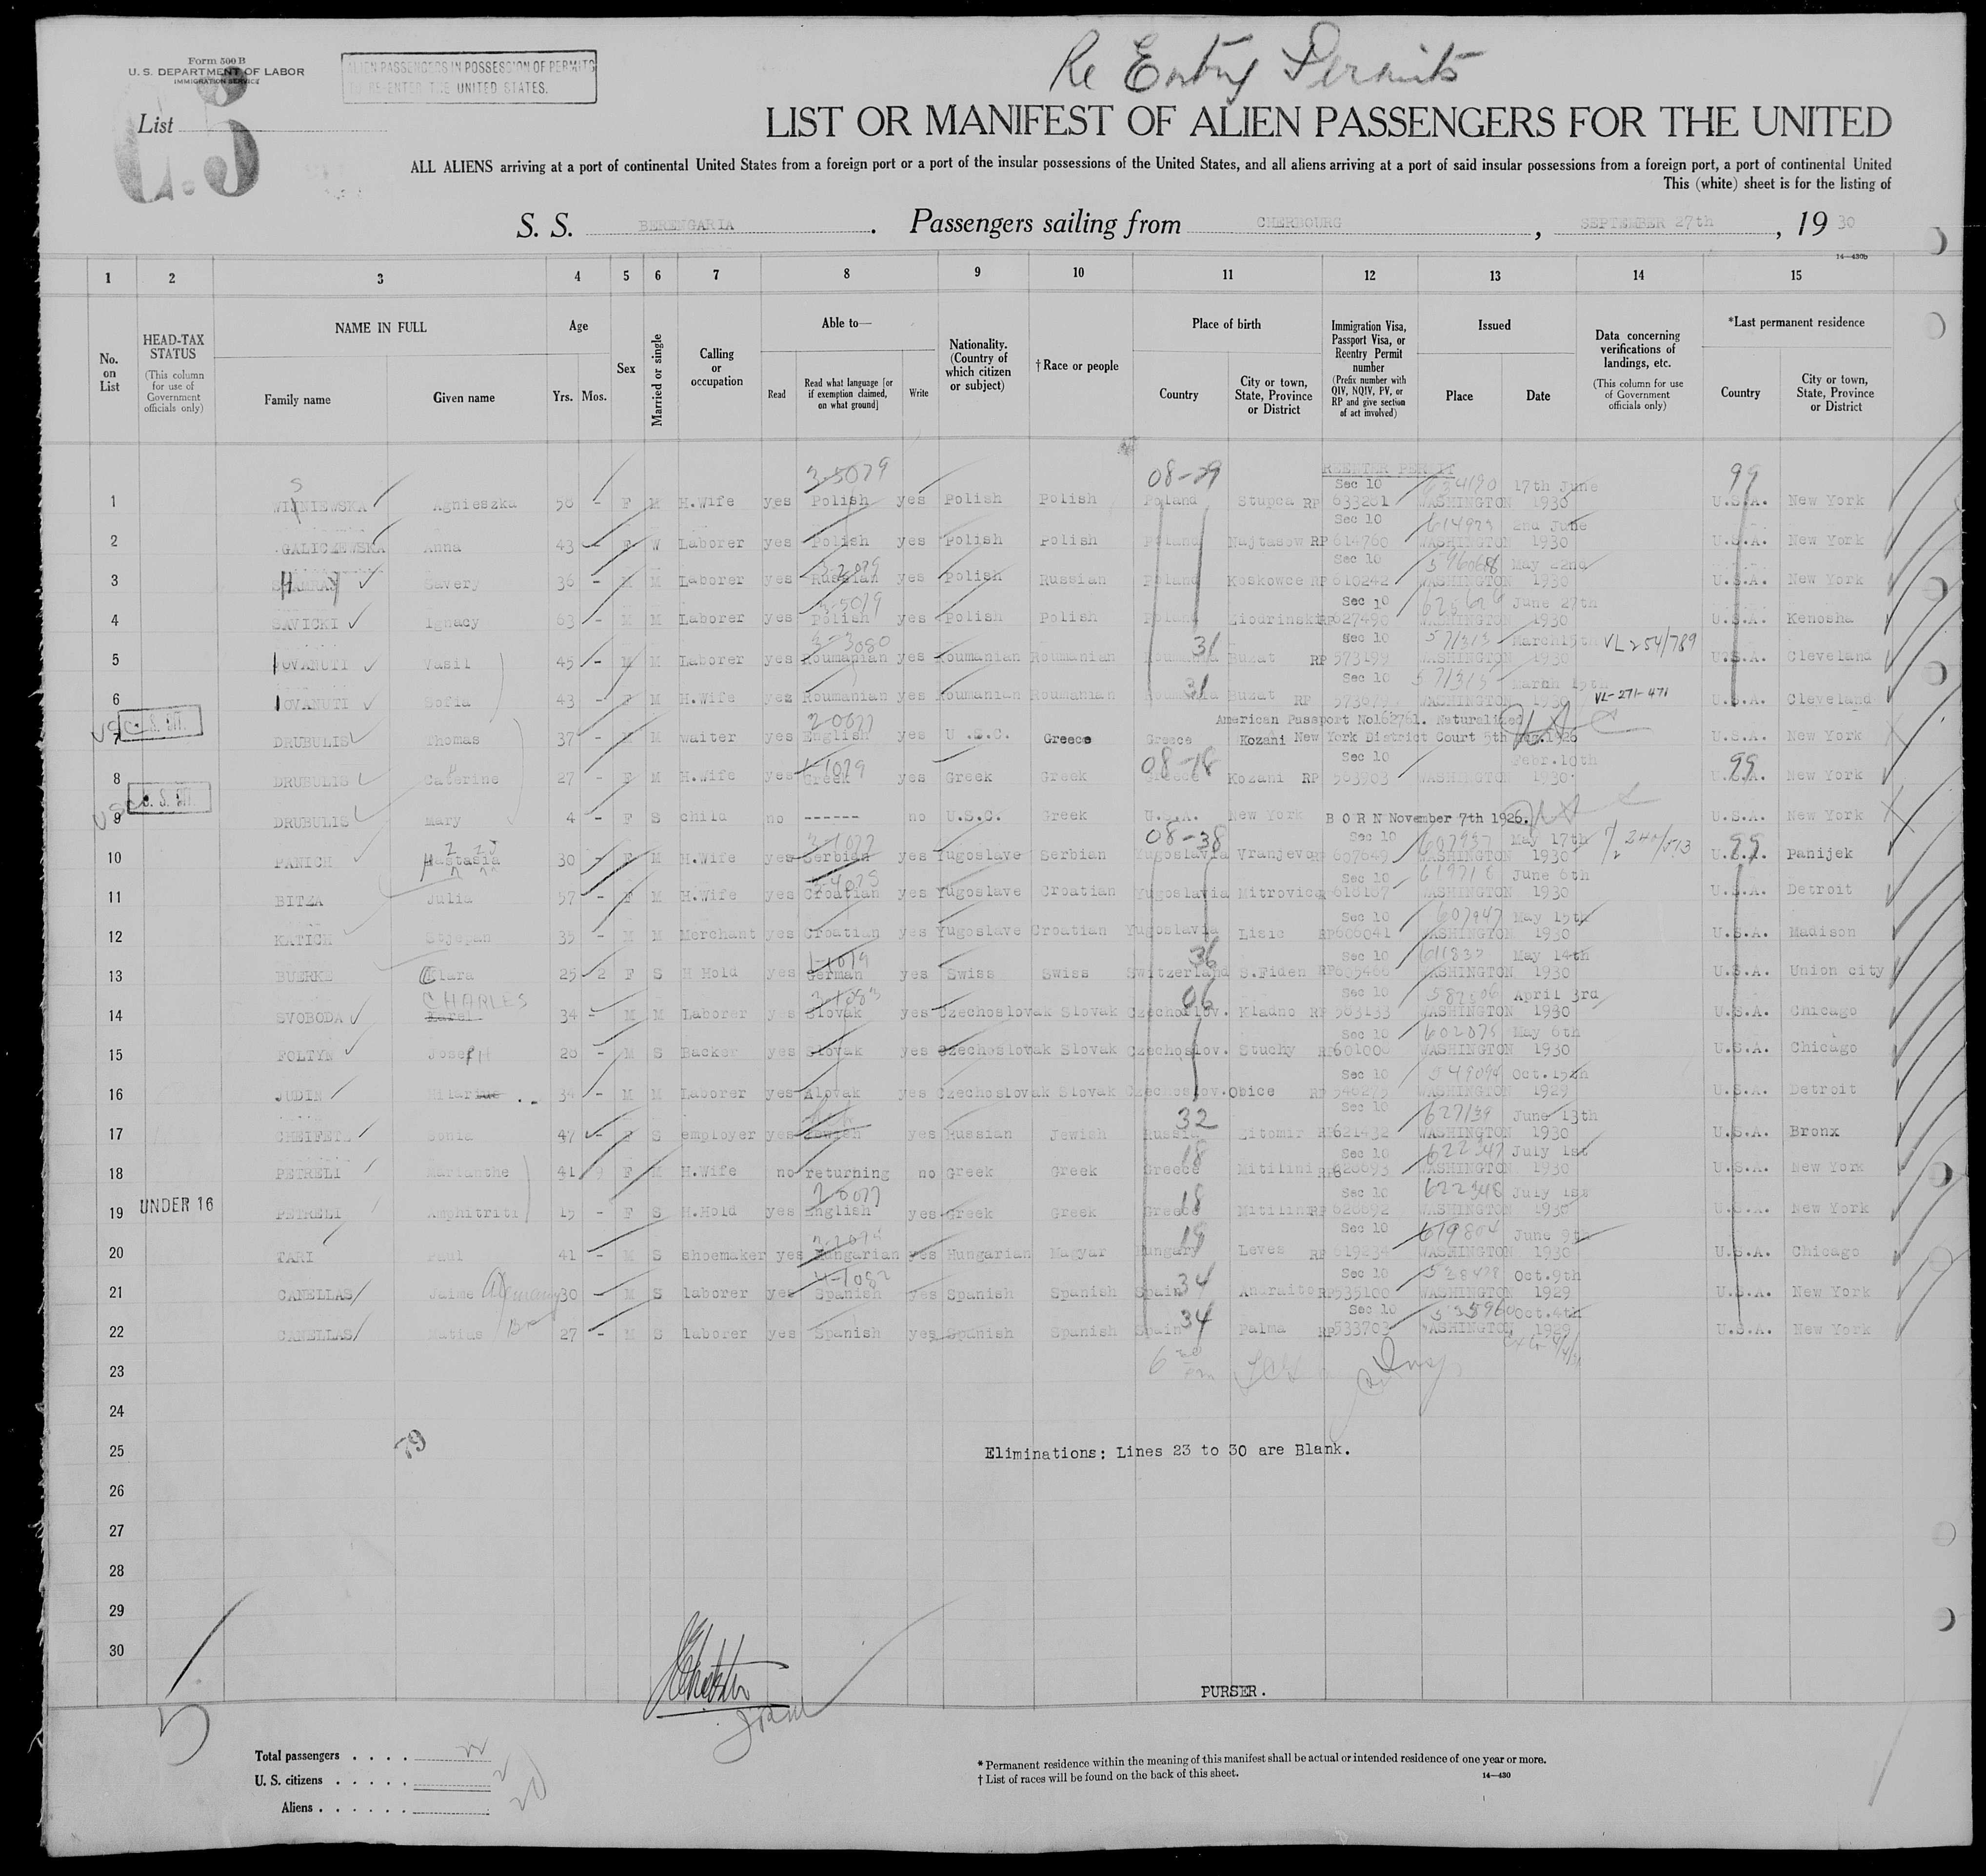 Form 500 B
U. S. DEPARTMENT OF LABOR
IMMIGRATION SERVICE
ALIEN PASSENGERS IN POSSESSION OF PERMITS
TO RE-ENTER THE UNITED STATES.
Re Entry Permits
List
LIST OR MANIFEST OF ALIEN PASSENGERS FOR THE UNITED
ALL ALIENS arriving at a port of continental United States from a foreign port or a port of the insular possessions of the United States, and all aliens arriving at a port of said insular possessions from a foreign port, a port of continental United
This (white) sheet is for the listing of
S. S. BERENGARIA. Passengers sailing from CHERBOURG, SEPTEMBER 27th, 19 30
14—430b
1 2 3 4 5 6 7 8 9 10 11 12 13 14 15
No. on List
HEAD-TAX STATUS (This column for use of Government officials only)
NAME IN FULL
Family name Given name
Age Yrs. Mos.
Sex
Married or single
Calling or occupation
Able to—
Read Read what language [or if exemption claimed, on what ground] Write
Nationality. (Country of which citizen or subject)
† Race or people
Place of birth
Country City or town, State, Province or District
Immigration Visa, Passport Visa, or Reentry Permit number (Prefix number with QIV, NQIV, PV, or RP and give section of act involved)
Issued
Place Date
Data concerning verifications of landings, etc. (This column for use of Government officials only)
*Last permanent residence
Country City or town, State, Province or District
3-5079 08-29 REENTER PERMIT 99
Sec 10 17th June
1 WISNIEWSKA Agnieszka 58 - F M H.Wife yes Polish yes Polish Polish Poland Stupca RP 633261 WASHINGTON 1930 U.S.A. New York
Sec 10 2nd June
2 GALICZEWSKA Anna 43 - F W Laborer yes Polish yes Polish Polish Poland RP 614760 WASHINGTON 1930 U.S.A. New York
Sec 10 May 22nd
3 Savery 36 - M M Laborer yes Russian yes Polish Russian Poland Koskowce RP 610242 WASHINGTON 1930 U.S.A. New York
3-5079 Sec 10 June 27th
4 SAVICKI Ignacy 63 - M M Laborer yes Polish yes Polish Polish Poland Ziodrinski RP 627490 WASHINGTON 1930 U.S.A. Kenosha
3-3080 31 Sec 10 571313 March 15th VL 254/789
5 IOVANUTI Vasil 45 - M M Laborer yes Roumanian yes Roumanian Roumanian Roumania Buzat RP 573199 WASHINGTON 1930 U.S.A. Cleveland
31 Sec 10 571315 March 15th VL-271-471
6 IOVANUTI Sofia 43 - F M H.Wife yes Roumanian yes Roumanian Roumanian Roumania Buzat RP WASHINGTON 1930 U.S.A. Cleveland
American Passport No162761. Naturalized
7 DRUBULIS Thomas 37 - M M waiter yes English yes U.S.C. Greece Greece Kozani New York District Court 5th Aug.1926 U.S.A. New York
1-1079 08-18 Sec 10 Febr.10th 99
8 DRUBULIS Caterine 27 - F M H.Wife yes Greek yes Greek Greek Greece Kozani RP 563903 WASHINGTON 1930 U.S.A. New York
9 DRUBULIS Mary 4 - F S child no ------ no U.S.C. Greek U.S.A. New York BORN November 7th 1926. U.S.A. New York
08-38 Sec 10 607937 May 17th 99
10 PANICH 30 - F M H.Wife yes Serbian yes Yugoslave Serbian Yugoslavia Vranjevo RP 607649 WASHINGTON 1930 U.S.A. Panijek
Sec 10 June 6th
11 BITZA Julia 57 - F M H.Wife yes Croatian yes Yugoslave Croatian Yugoslavia Mitrovica RP 618187 WASHINGTON 1930 U.S.A. Detroit
Sec 10 607947 May 15th
12 KATICH Stjepan 35 - M M Merchant yes Croatian yes Yugoslave Croatian Yugoslavia Lisic RP 606041 WASHINGTON 1930 U.S.A. Madison
1-1079 36 Sec 10 May 14th
13 BUERKE Clara 25 2 F S H Hold yes German yes Swiss Swiss Switzerland S.Fiden RP 605466 WASHINGTON 1930 U.S.A. Union city
CHARLES 06 Sec 10 April 3rd
14 SVOBODA Karel 34 - M M Laborer yes Slovak yes Czechoslovak Slovak Czechoslov. Kladno RP 583133 WASHINGTON 1930 U.S.A. Chicago
Sec 10 602075 May 6th
15 FOLTYN Joseph 28 - M S Backer yes Slovak yes Czechoslovak Slovak Czechoslov. Stuchy RP 601006 WASHINGTON 1930 U.S.A. Chicago
Sec 10 Oct.15th
16 JUDIN 34 - M M Laborer yes Alovak yes Czechoslovak Slovak Czechoslov. Obice RP WASHINGTON 1929 U.S.A. Detroit
32 Sec 10 627139 June 13th
17 CHEIFETZ Sonia 47 - F S employer yes Jewish yes Russian Jewish Russia Zitomir RP 621432 WASHINGTON 1930 U.S.A. Bronx
18 Sec 10 622347 July 1st
18 PETRELI Marianthe 41 F M H.Wife no returning no Greek Greek Greece Mitilini RP 628693 WASHINGTON 1930 U.S.A. New York
18 Sec 10 622348 July 1st
19 UNDER 16 PETRELI Amphitriti 15 - F S H.Hold yes English yes Greek Greek Greece Mitilini RP 628692 WASHINGTON 1930 U.S.A. New York
19 Sec 10 619804 June 9th
20 TARI Paul 41 - M S shoemaker yes Hungarian yes Hungarian Magyar Hungary Leves RP 619234 WASHINGTON 1930 U.S.A. Chicago
4-1082 34 Sec 10 528428 Oct.9th
21 CANELLAS Jaime Alemany 30 - M S laborer yes Spanish yes Spanish Spanish Spain Andraito RP 535100 WASHINGTON 1929 U.S.A. New York
34 Sec 10 535960 Oct.4th
22 CANELLAS Matias 27 - M S laborer yes Spanish yes Spanish Spanish Spain Palma RP 533703 WASHINGTON 1929 U.S.A. New York
23
24
25 Eliminations: Lines 23 to 30 are Blank.
79
26
27
28
29
30
PURSER.
Total passengers
U. S. citizens
Aliens
* Permanent residence within the meaning of this manifest shall be actual or intended residence of one year or more.
† List of races will be found on the back of this sheet.
14—430